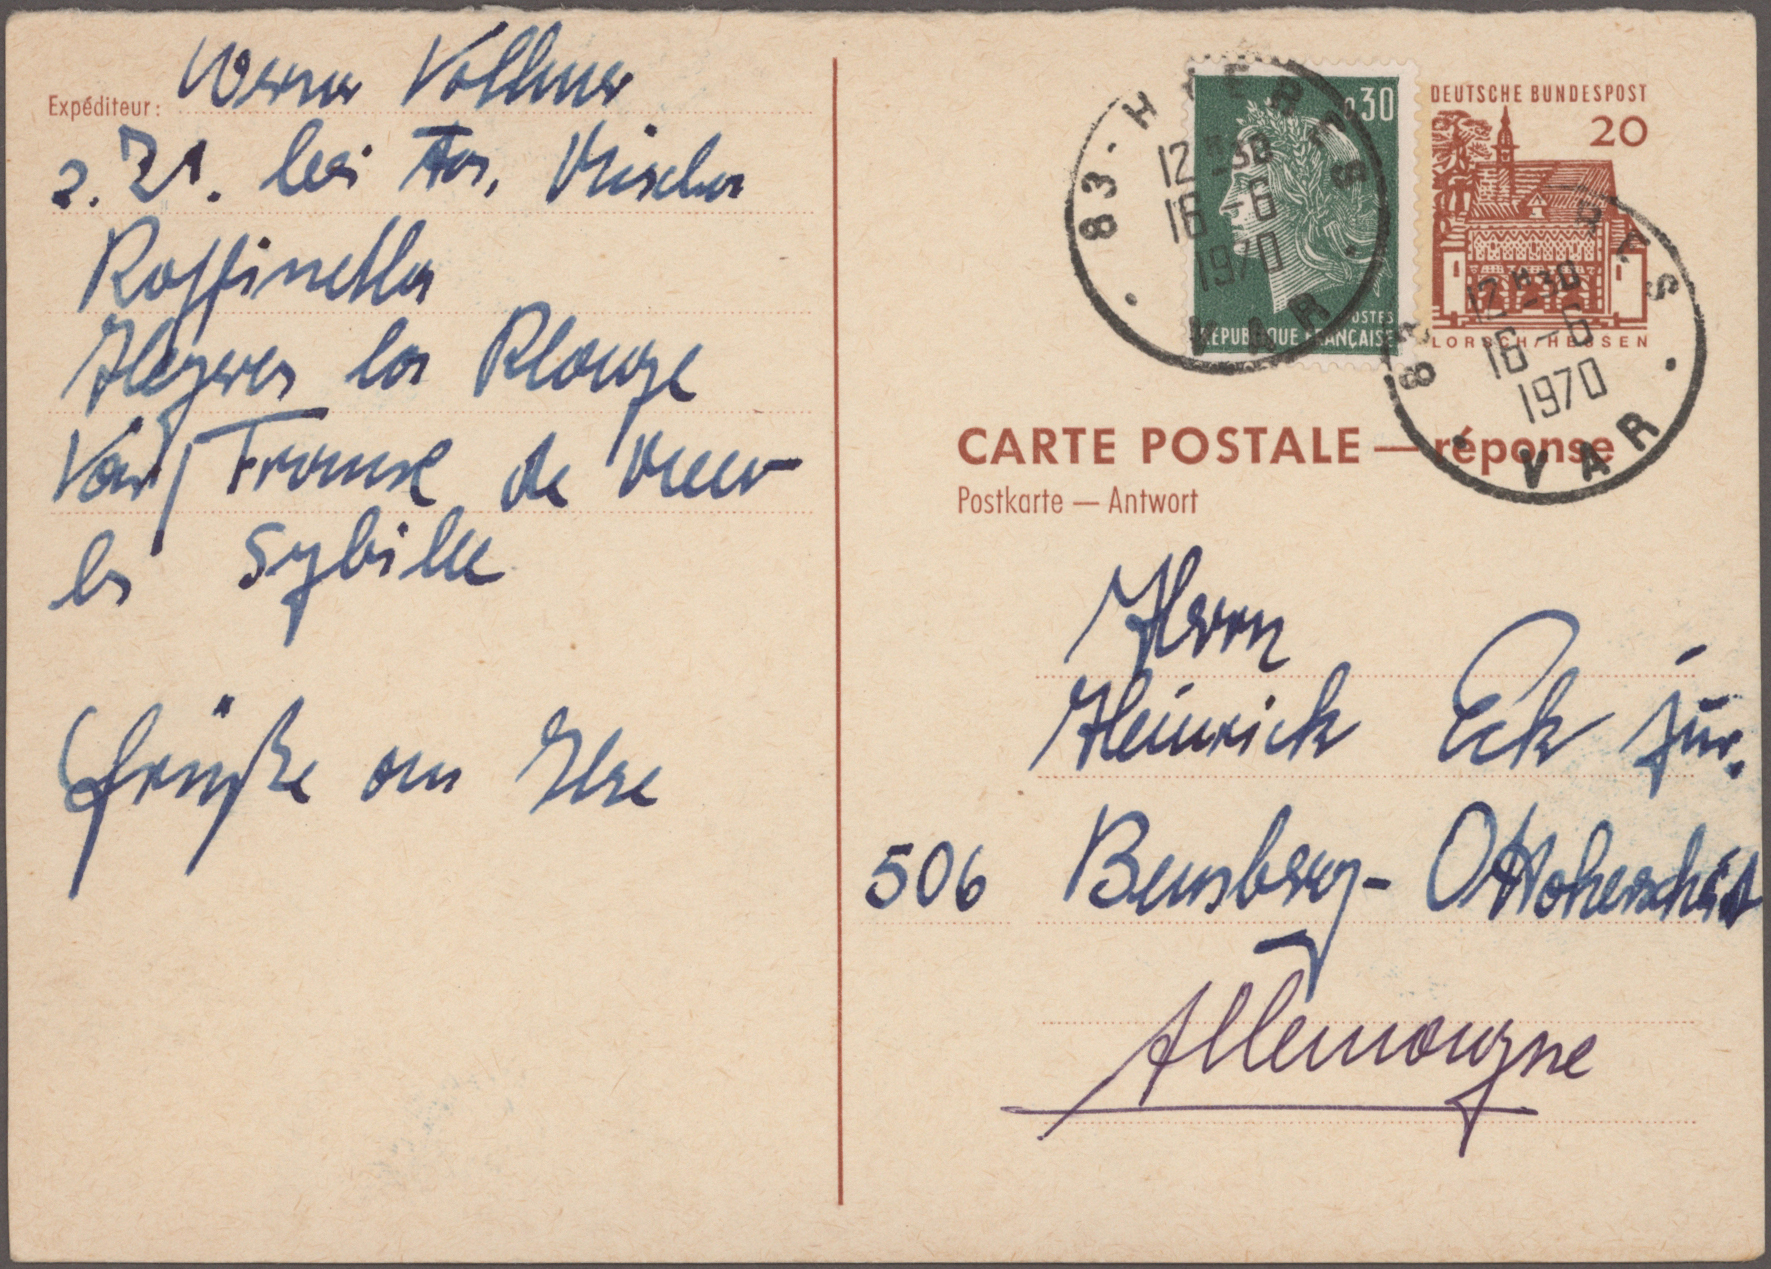 Expéditeur: Werner Vollmer
z. Zt. bei Fa. Vischer
Raffinella
Hyeres la Plage
Var / France
la Sybille
Grüße an Ilse
0,30
POSTES
REPUBLIQUE FRANÇAISE
83 - HYERES
12 H30
16 - 6
1970
VAR
DEUTSCHE BUNDESPOST
20
LORSCH/HESSEN
83
12 H30
16 - 6
1970
VAR
CARTE POSTALE — réponse
Postkarte — Antwort
Herrn
Heinrich Eck jun.
506 Bensberg - Ottoherscheid
Allemagne